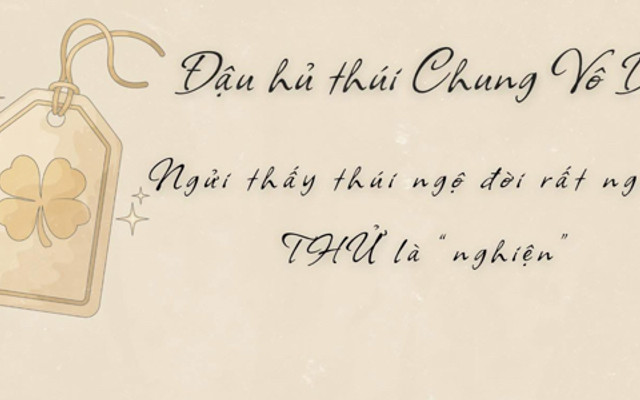 Đậu hủ thúi Chung Vô
Ngửi thấy thúi ngộ đời rất
THỬ là “nghiện”